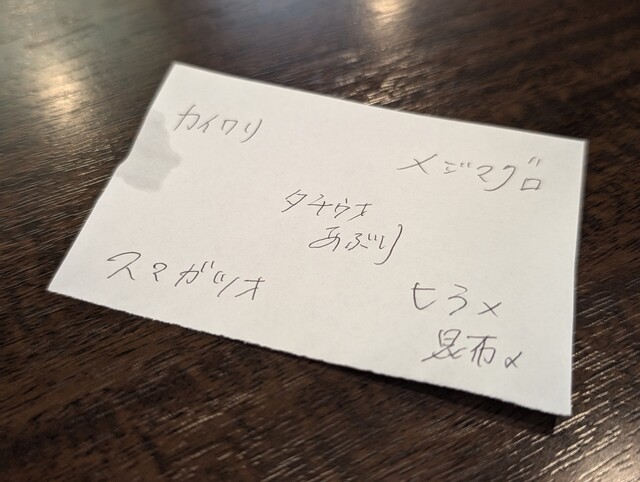 カイワリ
メジマグロ
タチウオ
あぶり
スマガツオ
ヒラメ
昆布〆